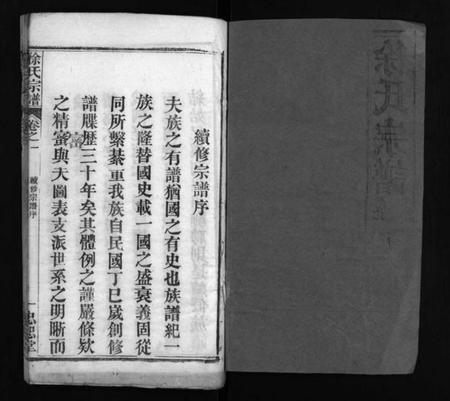 徐氏宗譜
續修宗譜序
夫族之有譜猶國之有史也族譜紀一
族之隆替國史載一國之盛衰義固從
同所繫綦重我族自民國丁巳歲創修
譜牒歷三十年矣其體例之謹嚴條欵
之精審與夫圖表支派世系之明晰而
徐氏宗譜
卷之一
續修宗譜序
一